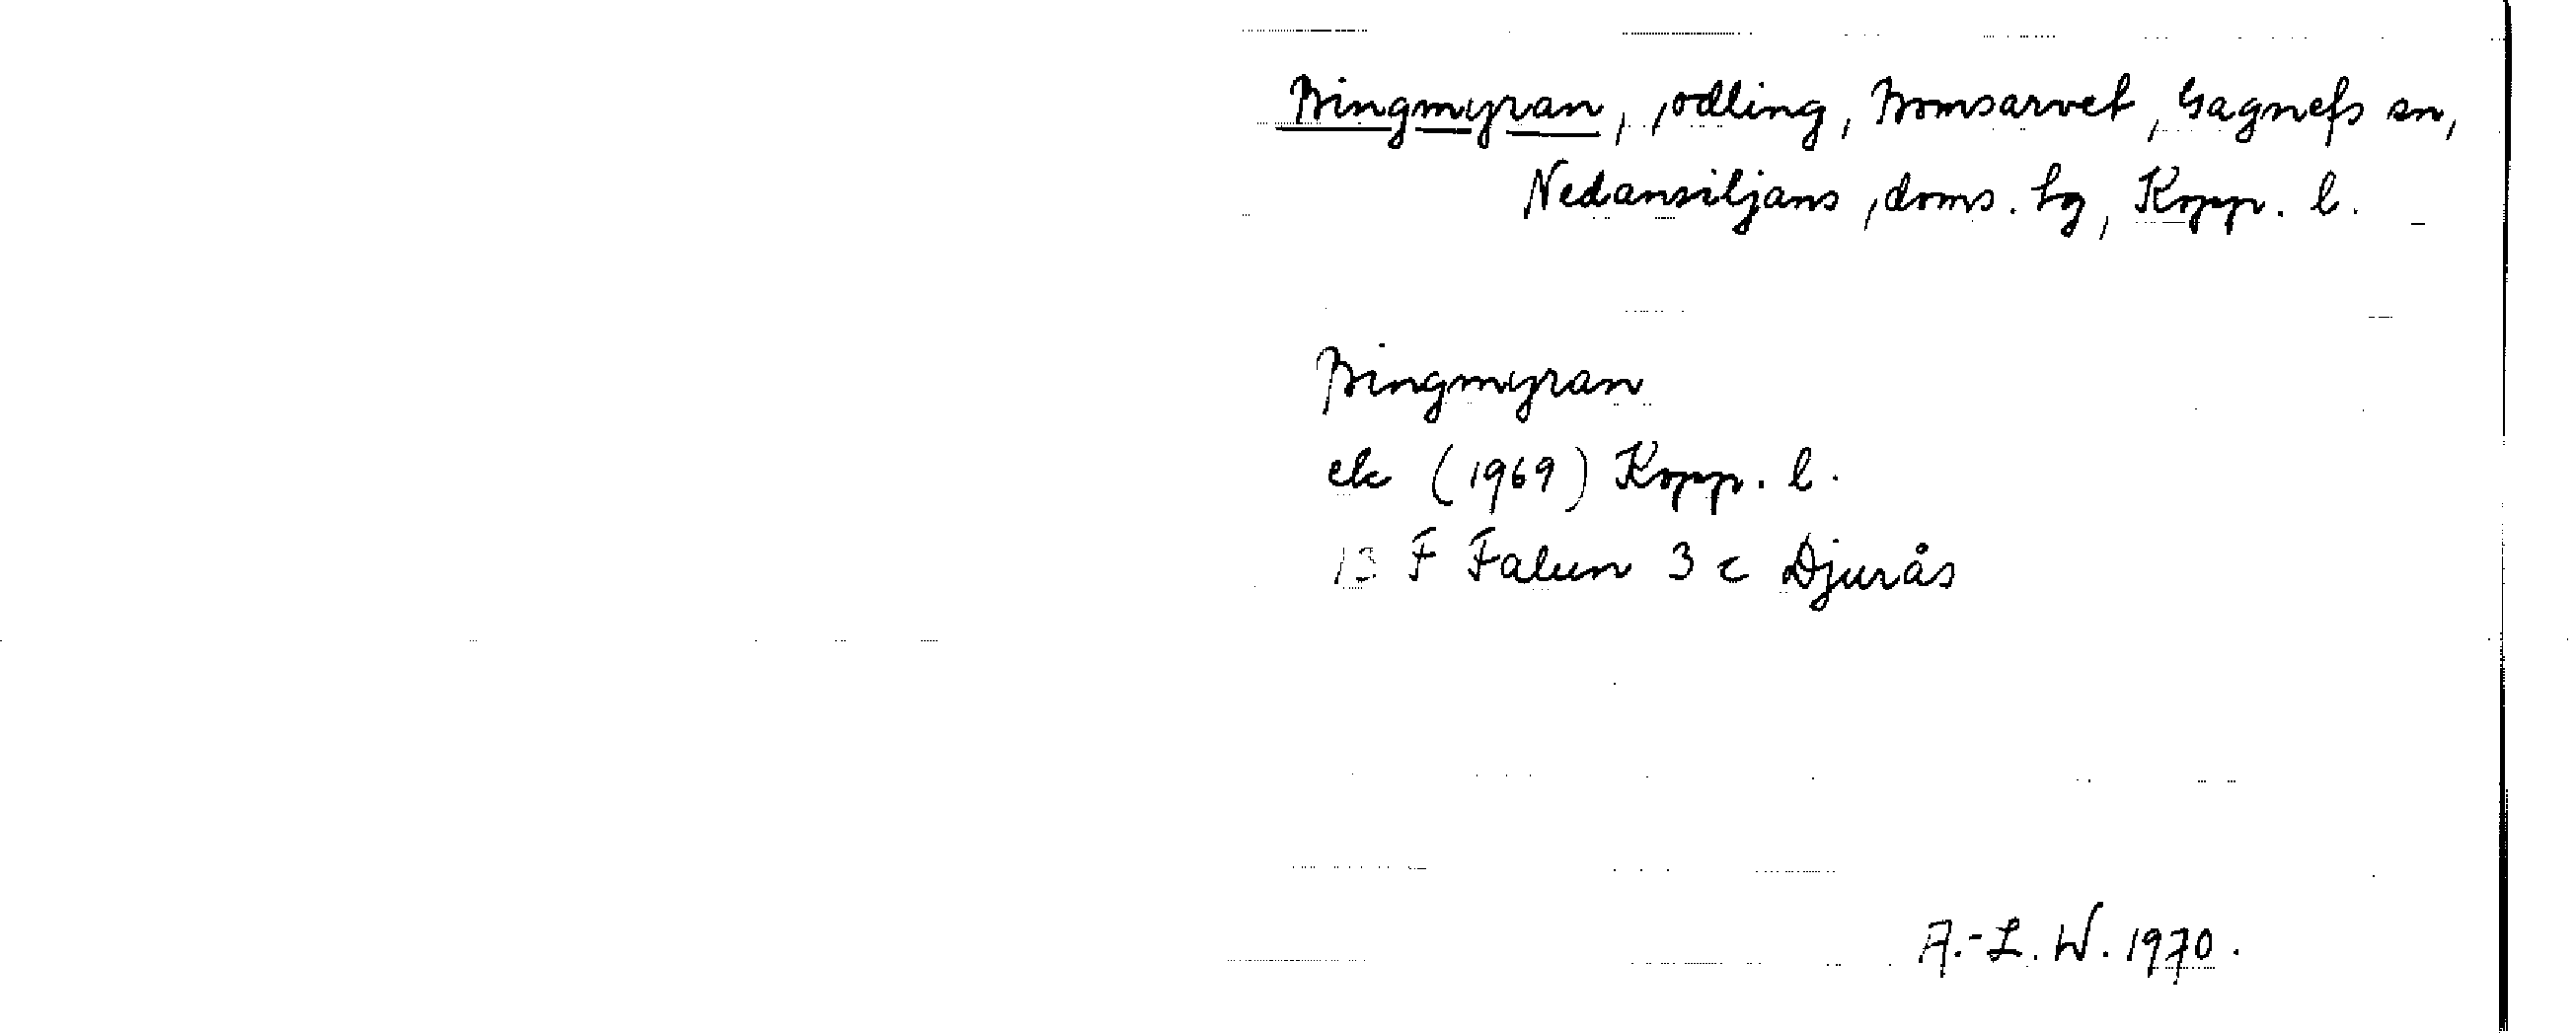 Bingmyran, odling, Bomsarvet, Gagnefs sn,
Nedansiljans doms. hg, Kopp. l.
Bingmyran
ek (1969) Kopp. l.
13 F Falun 3 c Djurås
A.-L. W. 1970.